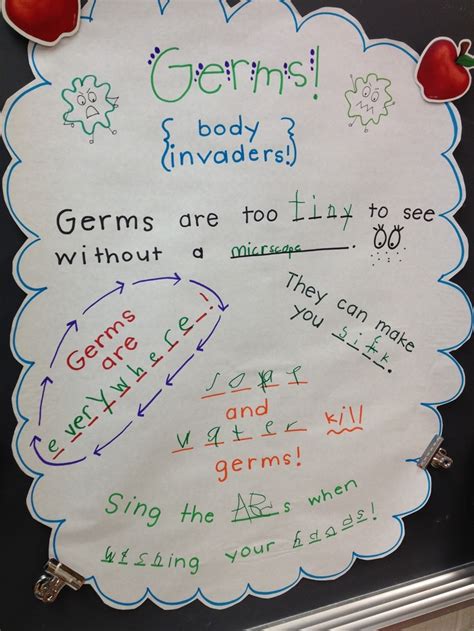 Germs!
{ body
invaders! }
Germs are too tiny to see
without a micrscope.
They can make
you sifk.
Germs
are
everywhere!
soap
and
water kill
germs!
Sing the ABCs when
wishing your hands!